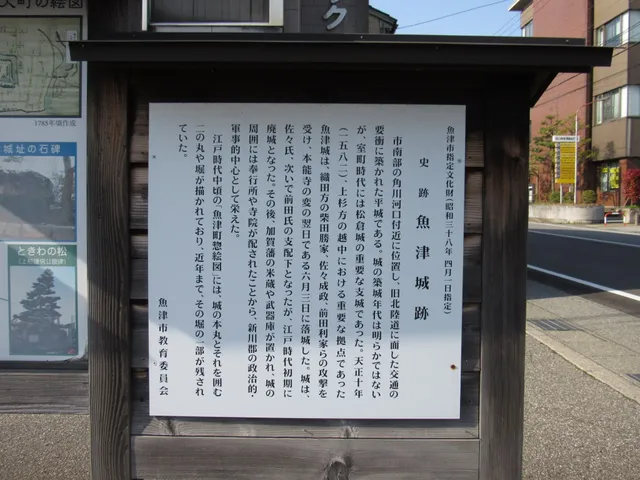 魚津市指定文化財(昭和三十八年 四月一日指定)
史跡 魚津城跡
市南部の角川河口付近に位置し、旧北陸道に面した交通の
要衝に築かれた平城である。城の築城年代は明らかではない
が、室町時代には松倉城の重要な支城であった。天正十年
(一五八二)、上杉方の越中における重要な拠点であった
魚津城は、織田方の柴田勝家、佐々成政、前田利家らの攻撃を
受け、本能寺の変の翌日である六月三日に落城した。城は、
佐々氏、次いで前田氏の支配下となったが、江戸時代初期に
廃城となった。その後、加賀藩の米蔵や武器庫が置かれ、城の
周囲には奉行所や寺院が配されたことから、新川郡の政治的・
軍事的中心として栄えた。
江戸時代中頃の「魚津町惣絵図」には、城の本丸とそれを囲む
二の丸や堀が描かれており、近年まで、その堀の一部が残され
ていた。
魚津市教育委員会
町の絵図
1785年頃作成
城址の石碑
ときわの松
ク